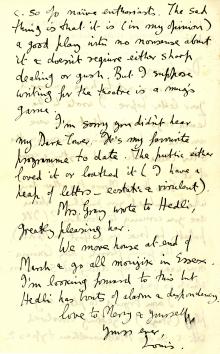 c. 50 naive enthusiasts. The sad
thing is that it is (in my opinion)
a good play with no nonsense about
it & doesn't require either sharp
dealing or gush. But I suppose
writing for the theatre is a mug's
game.
I'm sorry you didn't hear
my Dark Tower. It's my favourite
programme to date. The public either
loved it or loathed it (I have a
heap of letters – ecstatic & virulent).
Mrs. Gray wrote to Hedli,
greatly pleasing her.
We move house at end of
March & go all moujik in Essex.
I'm looking forward to this but
Hedli has bouts of alarm & despondency.
love to Mercy & yourself,
yours ever,
Louis.